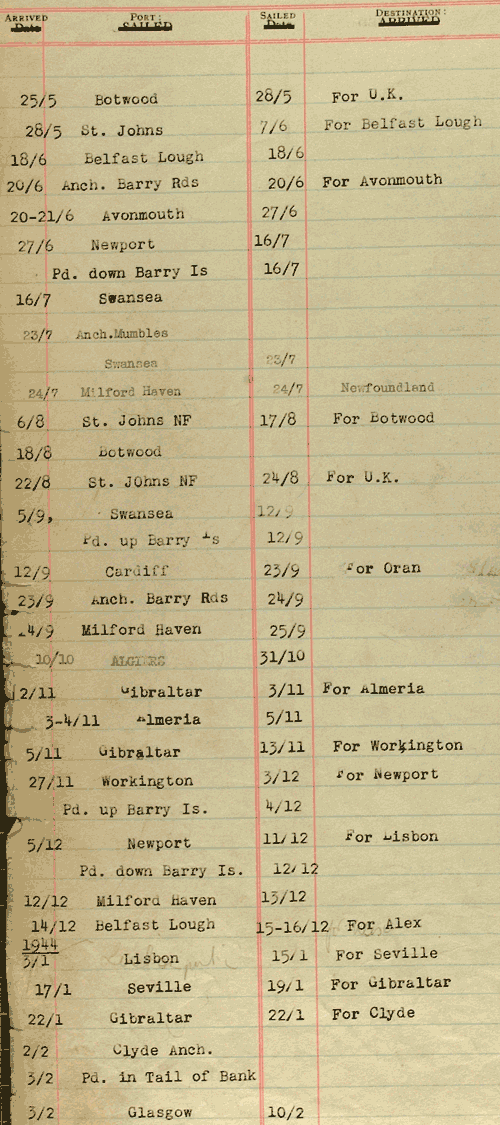 ARRIVED PORT: SAILED DESTINATION:
Date SAILED Date ARRIVED
25/5 Botwood 28/5 For U.K.
28/5 St. Johns 7/6 For Belfast Lough
18/6 Belfast Lough 18/6
20/6 Anch. Barry Rds 20/6 For Avonmouth
20-21/6 Avonmouth 27/6
27/6 Newport 16/7
Pd. down Barry Is 16/7
16/7 Swansea
23/7 Anch.Mumbles
Swansea 23/7
24/7 Milford Haven 24/7 Newfoundland
6/8 St. Johns NF 17/8 For Botwood
18/8 Botwood
22/8 St. JOhns NF 24/8 For U.K.
5/9, Swansea 12/9
Pd. up Barry Is 12/9
12/9 Cardiff 23/9 For Oran
23/9 Anch. Barry Rds 24/9
24/9 Milford Haven 25/9
10/10 ALGIERS 31/10
2/11 Gibraltar 3/11 For Almeria
3-4/11 Almeria 5/11
5/11 Gibraltar 13/11 For Workington
27/11 Workington 3/12 For Newport
Pd. up Barry Is. 4/12
5/12 Newport 11/12 For Lisbon
Pd. down Barry Is. 12/12
12/12 Milford Haven 13/12
14/12 Belfast Lough 15-16/12 For Alex
1944
3/1 Lisbon 15/1 For Seville
17/1 Seville 19/1 For Gibraltar
22/1 Gibraltar 22/1 For Clyde
2/2 Clyde Anch.
3/2 Pd. in Tail of Bank
3/2 Glasgow 10/2